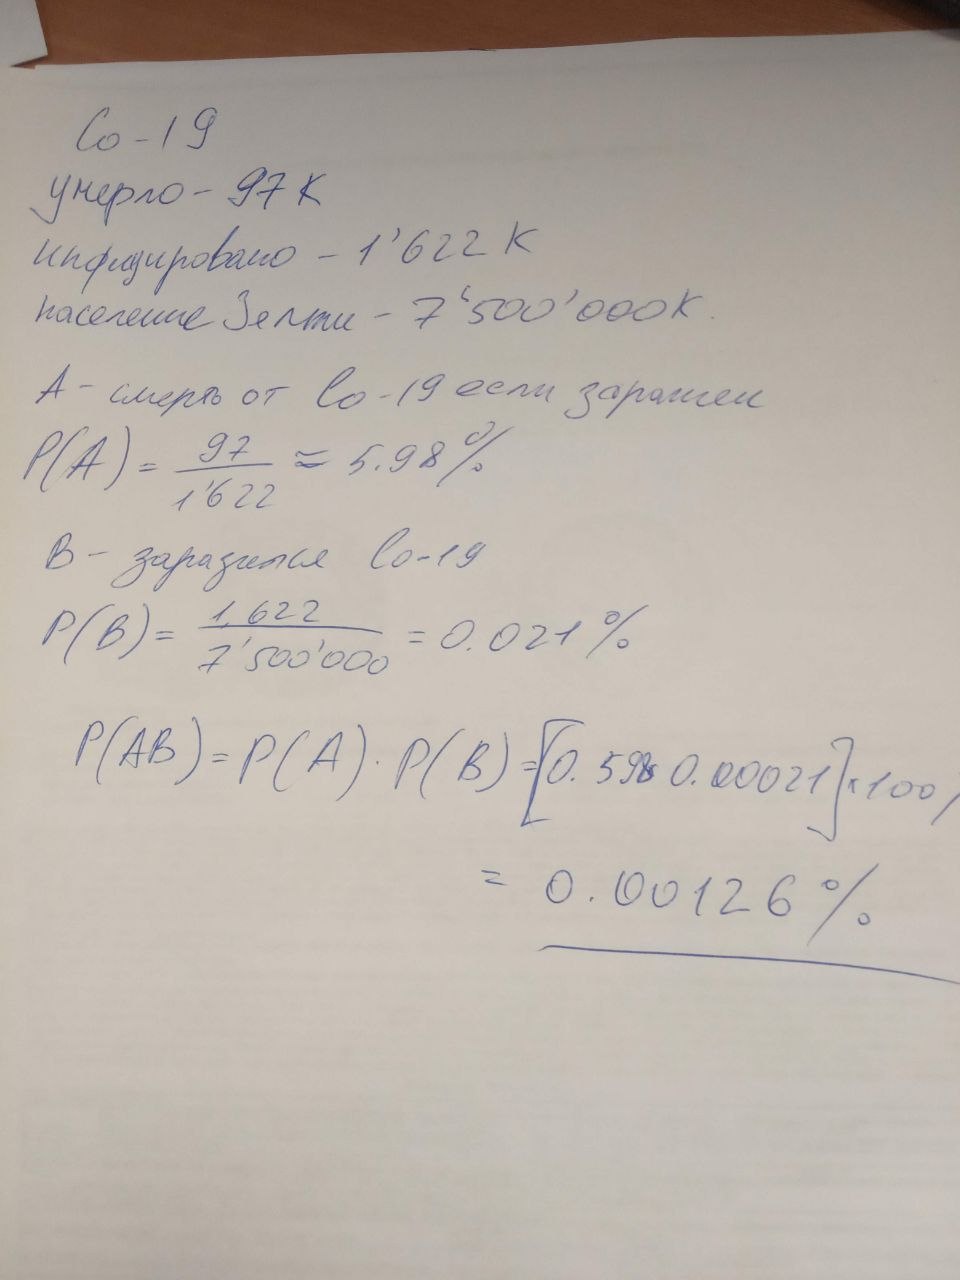 Co-19
умерло - 97 K
инфицировано - 1'622 K
население Земли - 7'500'000K.
A - смерть от Co-19 если заражен
P(A) = 97/1'622 ≈ 5.98%
B - заразится Co-19
P(B) = 1.622/7'500'000 = 0.021%
P(AB) = P(A) · P(B) = [0.598 0.00021] × 100%
= 0.00126%